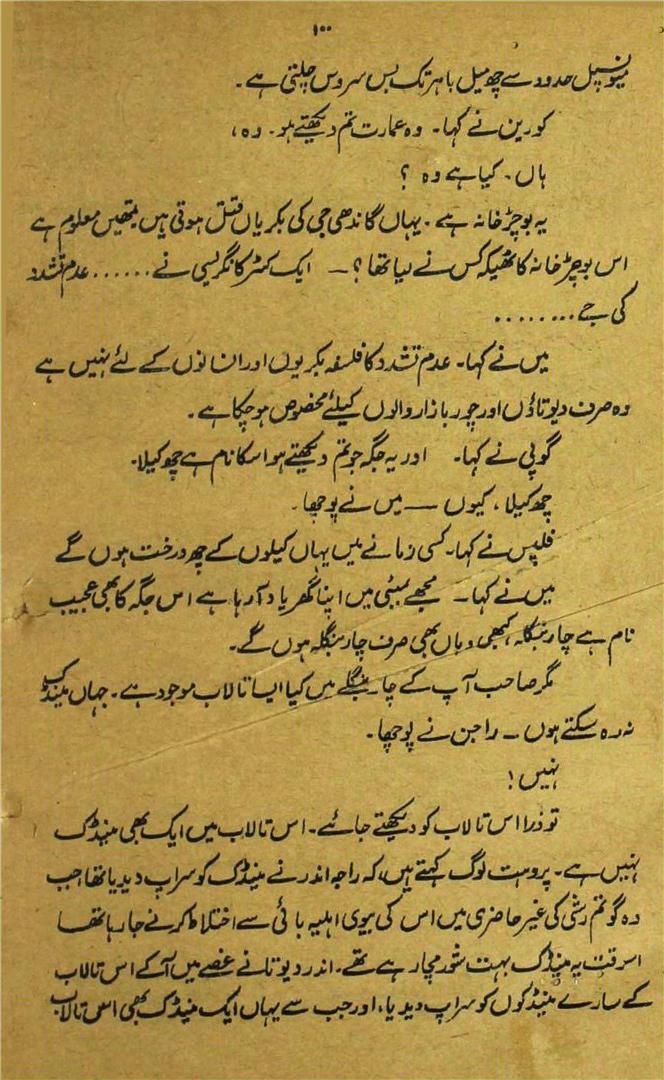 ۱۰۰
میونسپل حدود سے چھ میل باہر تک بس سروس چلتی ہے۔
کورین نے کہا۔ وہ عمارت تم دیکھتے ہو۔ وہ،
ہاں۔ کیا ہے وہ ؟
یہ بوچڑ خانہ ہے۔ یہاں گاندھی جی کی بکریاں قتل ہوتی ہیں تمھیں معلوم ہے
اس بوچڑ خانہ کا ٹھیکہ کس نے لیا تھا؟ — ایک کٹر کانگریسی نے ...... عدم تشدد
کی جے ........
میں نے کہا۔ عدم تشدد کا فلسفہ بکریوں اور انسانوں کے لئے نہیں ہے
وہ صرف دیوتاؤں اور چور بازار والوں کیلئے مخصوص ہو چکا ہے۔
گوپی نے کہا۔ اور یہ جگہ جو تم دیکھتے ہو اسکا نام ہے چھ کیلا۔
چھ کیلا، کیوں — میں نے پوچھا۔
فلپس نے کہا۔ کسی زمانے میں یہاں کیلوں کے چھ درخت ہوں گے
میں نے کہا — مجھے بمبئی میں اپنا گھر یاد آرہا ہے اس جگہ کا بھی عجیب
نام ہے چار بنگلہ، کبھی وہاں بھی صرف چار بنگلہ ہوں گے۔
مگر صاحب آپ کے چار بنگلے میں کیا ایسا تالاب موجود ہے۔ جہاں مینڈک
نہ رہ سکتے ہوں — راجن نے پوچھا۔
نہیں!
تو ذرا اس تالاب کو دیکھتے جائیے۔ اس تالاب میں ایک بھی مینڈک
نہیں ہے۔ پروہت لوگ کہتے ہیں، کہ راجہ اندر نے مینڈک کو سراپ دیدیا تھا جب
وہ گوتم رشی کی غیر حاضری میں اس کی بیوی اہلیہ بائی سے اختلاط کرنے جا رہا تھا
اسوقت یہ مینڈک بہت شور مچا رہے تھے۔ اندر دیوتا نے غصے میں آکے اس تالاب
کے سارے مینڈکوں کو سراپ دیدیا، اور جب سے یہاں ایک مینڈک بھی اس تالاب